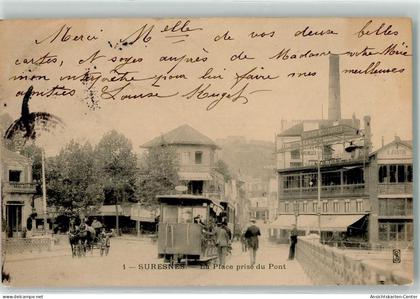 Merci, Melle, de vos deux belles
cartes, et soyez auprès de Madame votre Mère
mon interprète pour lui faire mes meilleures
amitiés Louise
1 - SURESNES - La Place prise du Pont
oldthing.de